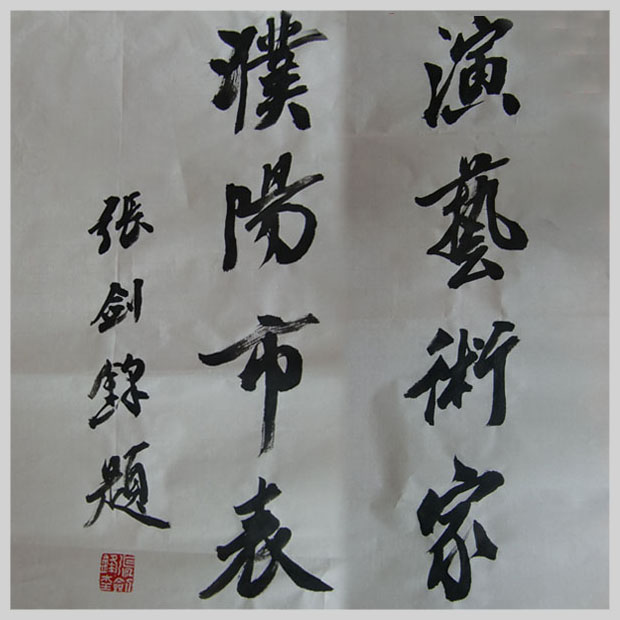 濮陽市表
演藝術家
張劍鋒題